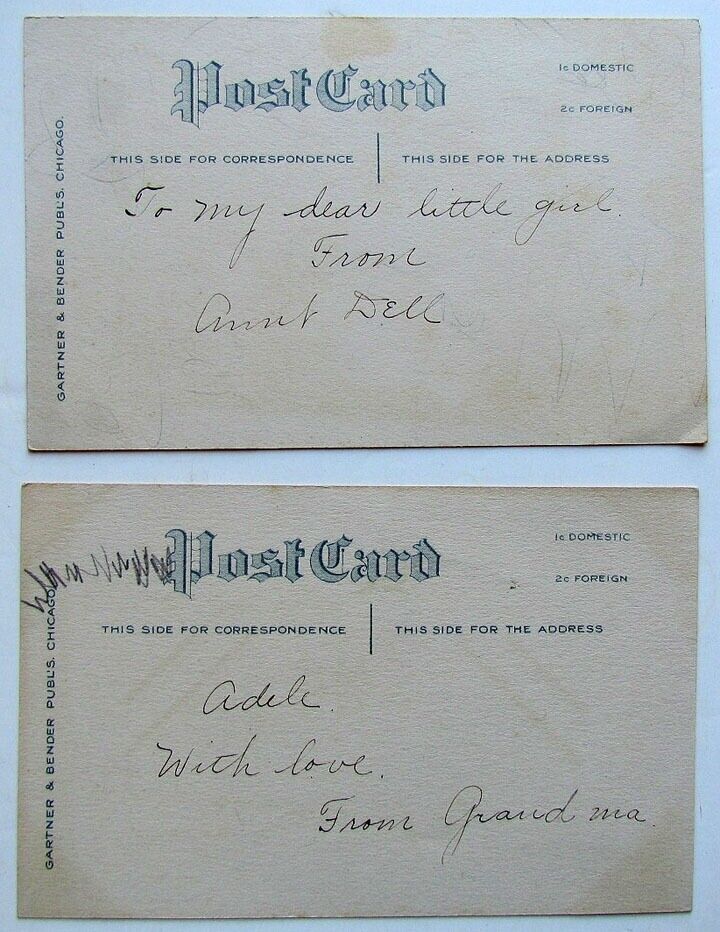 Post Card
1c DOMESTIC
2c FOREIGN
THIS SIDE FOR CORRESPONDENCE
THIS SIDE FOR THE ADDRESS
GARTNER & BENDER PUBL'S. CHICAGO.
To my dear little girl.
From
Aunt Dell
Post Card
1c DOMESTIC
2c FOREIGN
THIS SIDE FOR CORRESPONDENCE
THIS SIDE FOR THE ADDRESS
GARTNER & BENDER PUBL'S. CHICAGO.
Adele.
With love.
From Grandma.